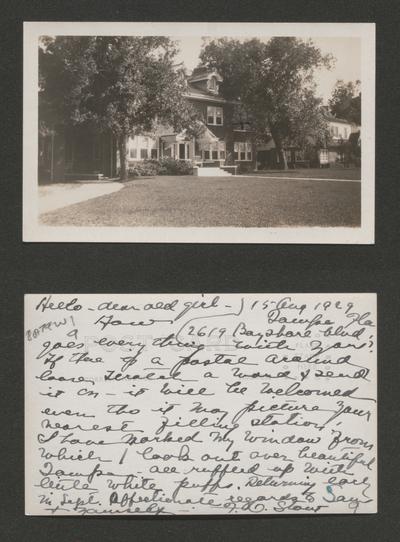 Hello - dear old girl - 15 Aug 1929
Tampa Fla
How 2619 Bayshore Blvd.
goes everything with your?
If there is a postal around
loose, scratch a word & send
it on - it will be welcomed
even tho it may picture your
nearest filling station!
I have marked my window from
which I look out over beautiful
Tampa - all ruffled up with
little white puffs. Returning early
in Sept. Affectionate regards to Sam
POST CARD